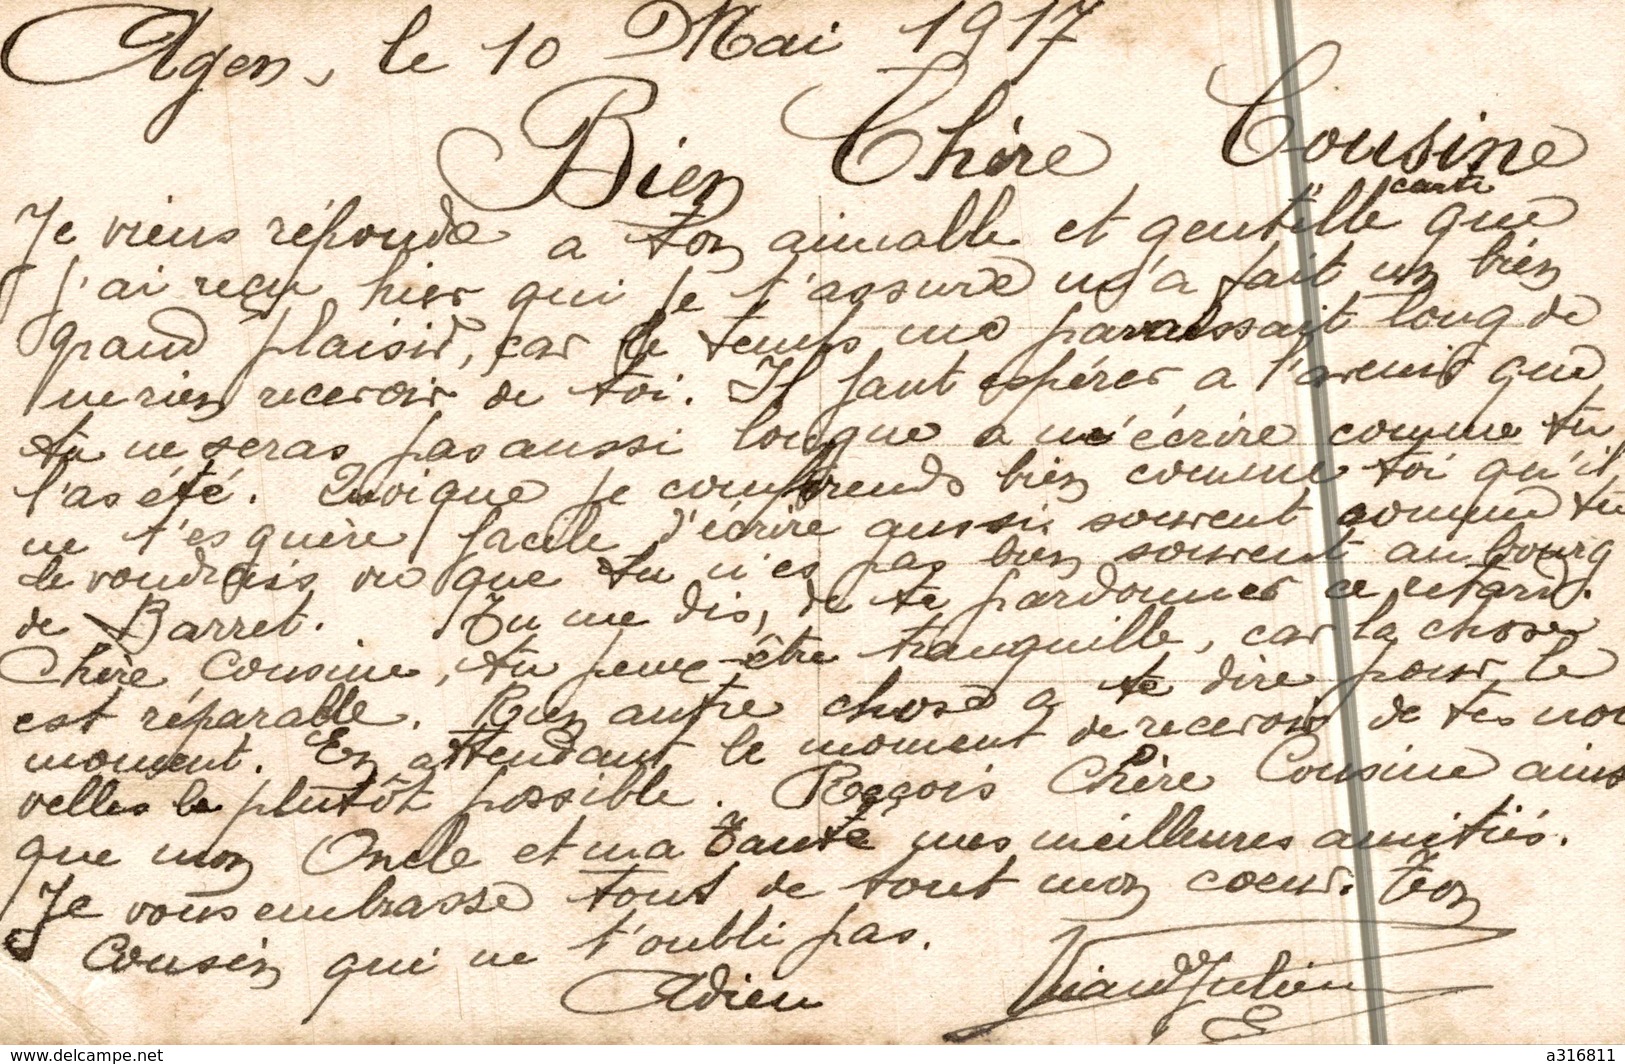 Agen, le 10 Mai 1917
Bien Chère Cousine
Je viens réponde a ton aimable et gentille carte que
j'ai reçu hier qui je t'assure m'a fait un bien
grand plaisir, car le temps me paraissait long de
ne rien recevoir de toi. Il faut espérer a l'avenir que
tu ne seras pas aussi longue a m'écrire comme tu
l'as été. Quoique je comprends bien comme toi qu'il
ne t'es guère facile d'écrire aussi souvent comme tu
le voudrais vu que tu n'es pas bien souvent au bourg
de Barret. Tu me dis, de te pardonner ce retard.
Chère Cousine, tu peux être tranquille, car la chose
est réparable. Rien autre chose a te dire pour le
moment. En attendant le moment de recevoir de tes nou
velles le plutôt possible. Reçois Chère Cousine ainsi
que mon Oncle et ma Tante mes meilleures amitiés.
Je vous embrasse tous de tout mon coeur. Ton
Cousin qui ne t'oubli pas.
Adieu Julien
www.delcampe.net a316811